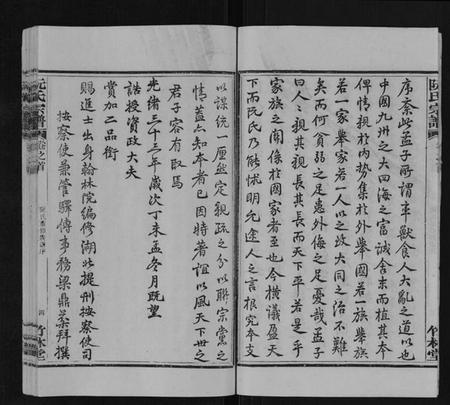 阮氏宗譜
竹林堂
序秦些孟子所謂率獸食人大亂之道以也
中國九州之大四海之富誠舍末而植其本
俾情親於內勢集於外舉國若一族舉族
若一家舉家若一人以之攻大同之治不難
矣而何貧弱之足患外侮之足憂哉孟子
曰人人親其親長其長而天下平若是乎
家族之關係於國家者至也今橫議盈天
下而阮氏乃能怵明允途人之言根究本支
以謀統一壓然定親疏之分以聯宗黨之
情蓋亦知本者已因特著誼以風天下世之
君子容有取焉
光緒三十三年歲次丁未孟冬月既望
誥授資政大夫
賞加二品銜
賜進士出身翰林院編修湖北提刑按察使司
按察使兼管驛傳事務梁鼎棻拜撰
阮氏宗譜
卷之首
四
竹林堂